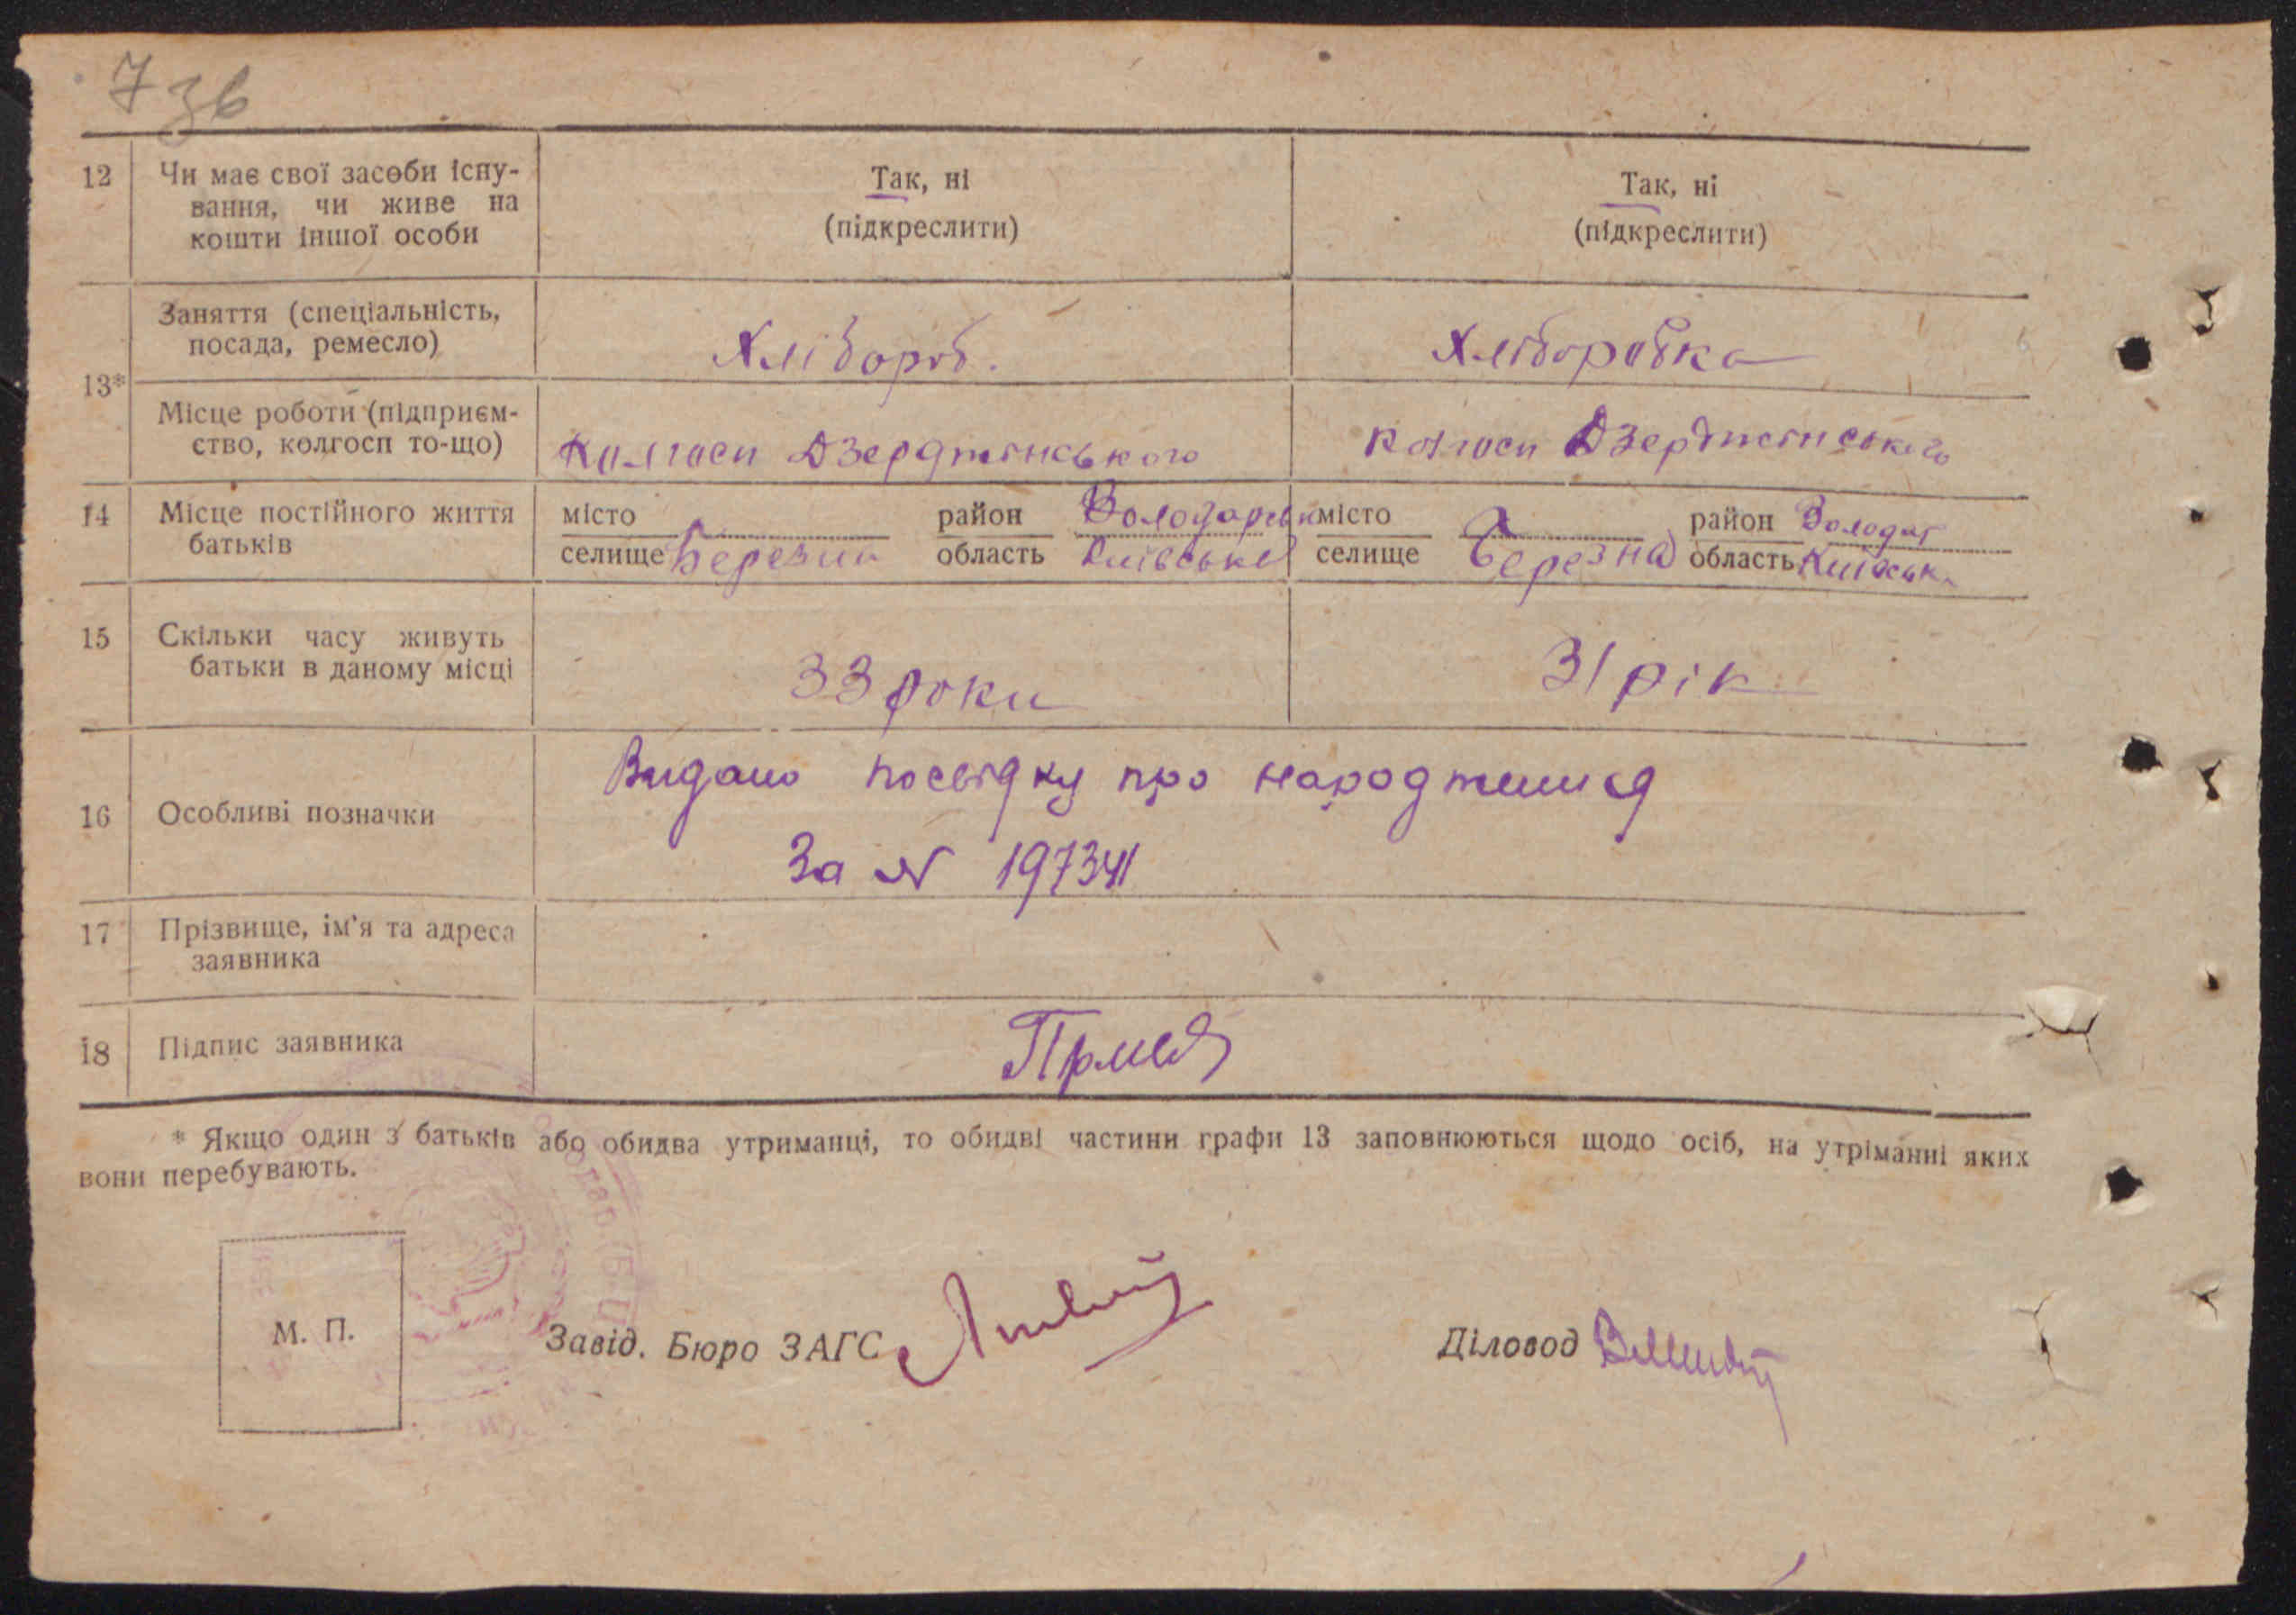 7 зв
12 Чи має свої засоби існу-
вання, чи живе на
кошти іншої особи
Так, ні
(підкреслити)
Так, ні
(підкреслити)
13*
Заняття (спеціальність,
посада, ремесло)
Хлібороб.
Хліборобка
Місце роботи (підприєм-
ство, колгосп то-що)
Колгосп Дзерджинського
Колгосп Дзержинського
14 Місце постійного життя
батьків
місто
селище Березна
район Володарськ
область Київське
місто
селище Березна
район Володар
область Київськ
15 Скільки часу живуть
батьки в даному місці
33 роки
31 рік
16 Особливі позначки
Видано посвідку про народження
За № 197341
17 Прізвище, ім'я та адреса
заявника
18 Підпис заявника
* Якщо один з батьків або обидва утриманці, то обидві частини графи 13 заповнюються щодо осіб, на утріманні яких
вони перебувають.
М. П.
Завід. Бюро ЗАГС
Діловод